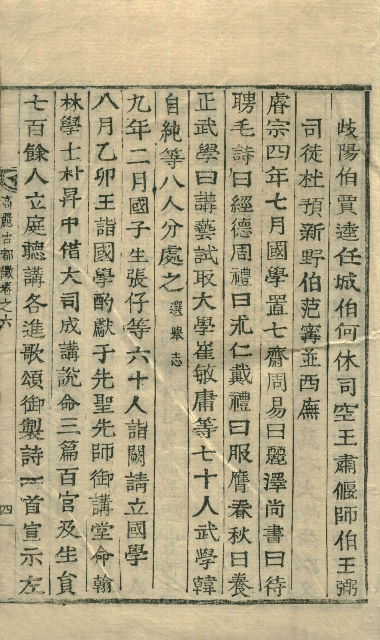 岐陽伯賈逵任城伯何休司空王肅偃師伯王弼
司徒杜預新野伯范甯並西廡
睿宗四年七月國學置七齋周易曰麗澤尚書曰待
聘毛詩曰經德周禮曰求仁戴禮曰服膺春秋曰養
正武學曰講藝試取大學崔敏庸等七十人武學韓
自純等八人分處之選舉志
九年二月國子生張仔等六十人詣闕請立國學
八月乙卯王詣國學酌獻于先聖先師御講堂命翰
林學士朴昇中借大司成講說命三篇百官及生員
七百餘人立庭聽講各進歌頌御製詩一首宣示左
高麗古都徵卷之六
四